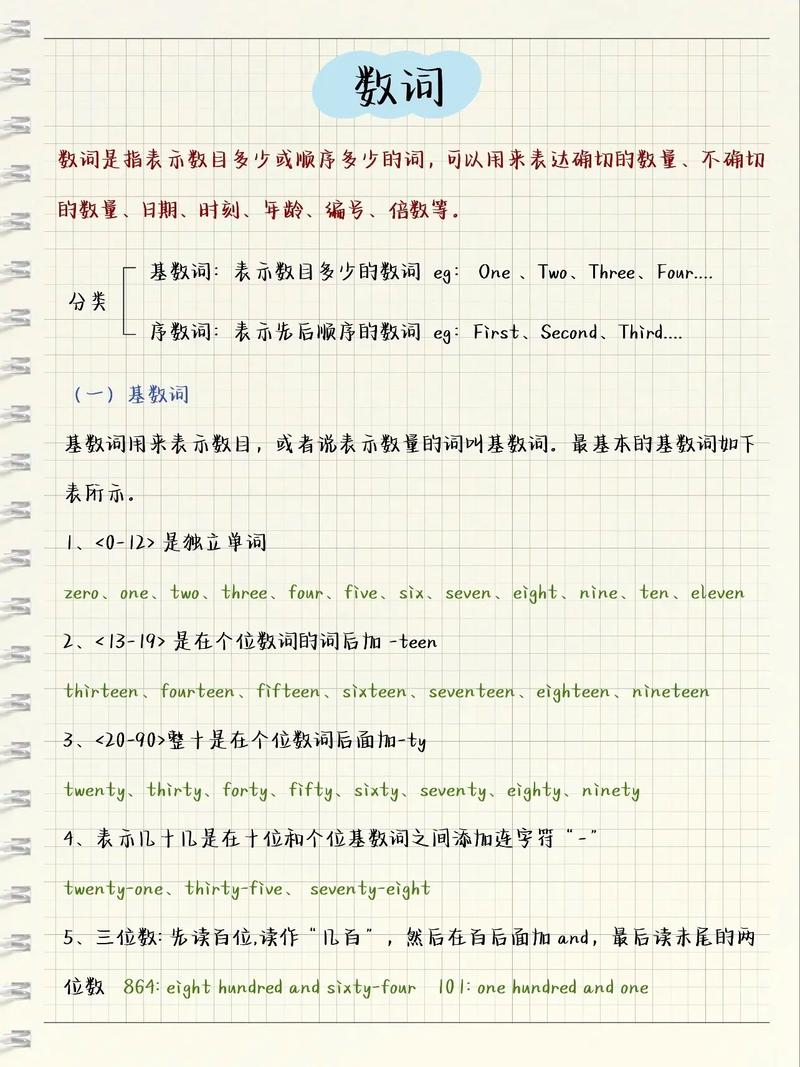 数词
数词是指表示数目多少或顺序多少的词，可以用来表达确切的数量、不确切
的数量、日期、时刻、年龄、编号、倍数等。
分类
基数词：表示数目多少的数词 eg： One 、Two、Three、Four....
序数词：表示先后顺序的数词 eg：First、Second、Third....
（一）基数词
基数词用来表示数目，或者说表示数量的词叫基数词。最基本的基数词如下
表所示。
1、<0-12> 是独立单词
zero、one、two、three、four、five、six、seven、eight、nine、ten、eleven
2、<13-19> 是在个位数词的词后加 -teen
thirteen、fourteen、fifteen、sixteen、seventeen、eighteen、nineteen
3、<20-90>整十是在个位数词后面加-ty
twenty、thirty、forty、fifty、sixty、seventy、eighty、ninety
4、表示几十几是在十位和个位基数词之间添加连字符“-”
twenty-one、thirty-five、 seventy-eight
5、三位数: 先读百位,读作“几百”，然后在百后面加 and，最后读末尾的两
位数 864: eight hundred and sixty-four 101: one hundred and one